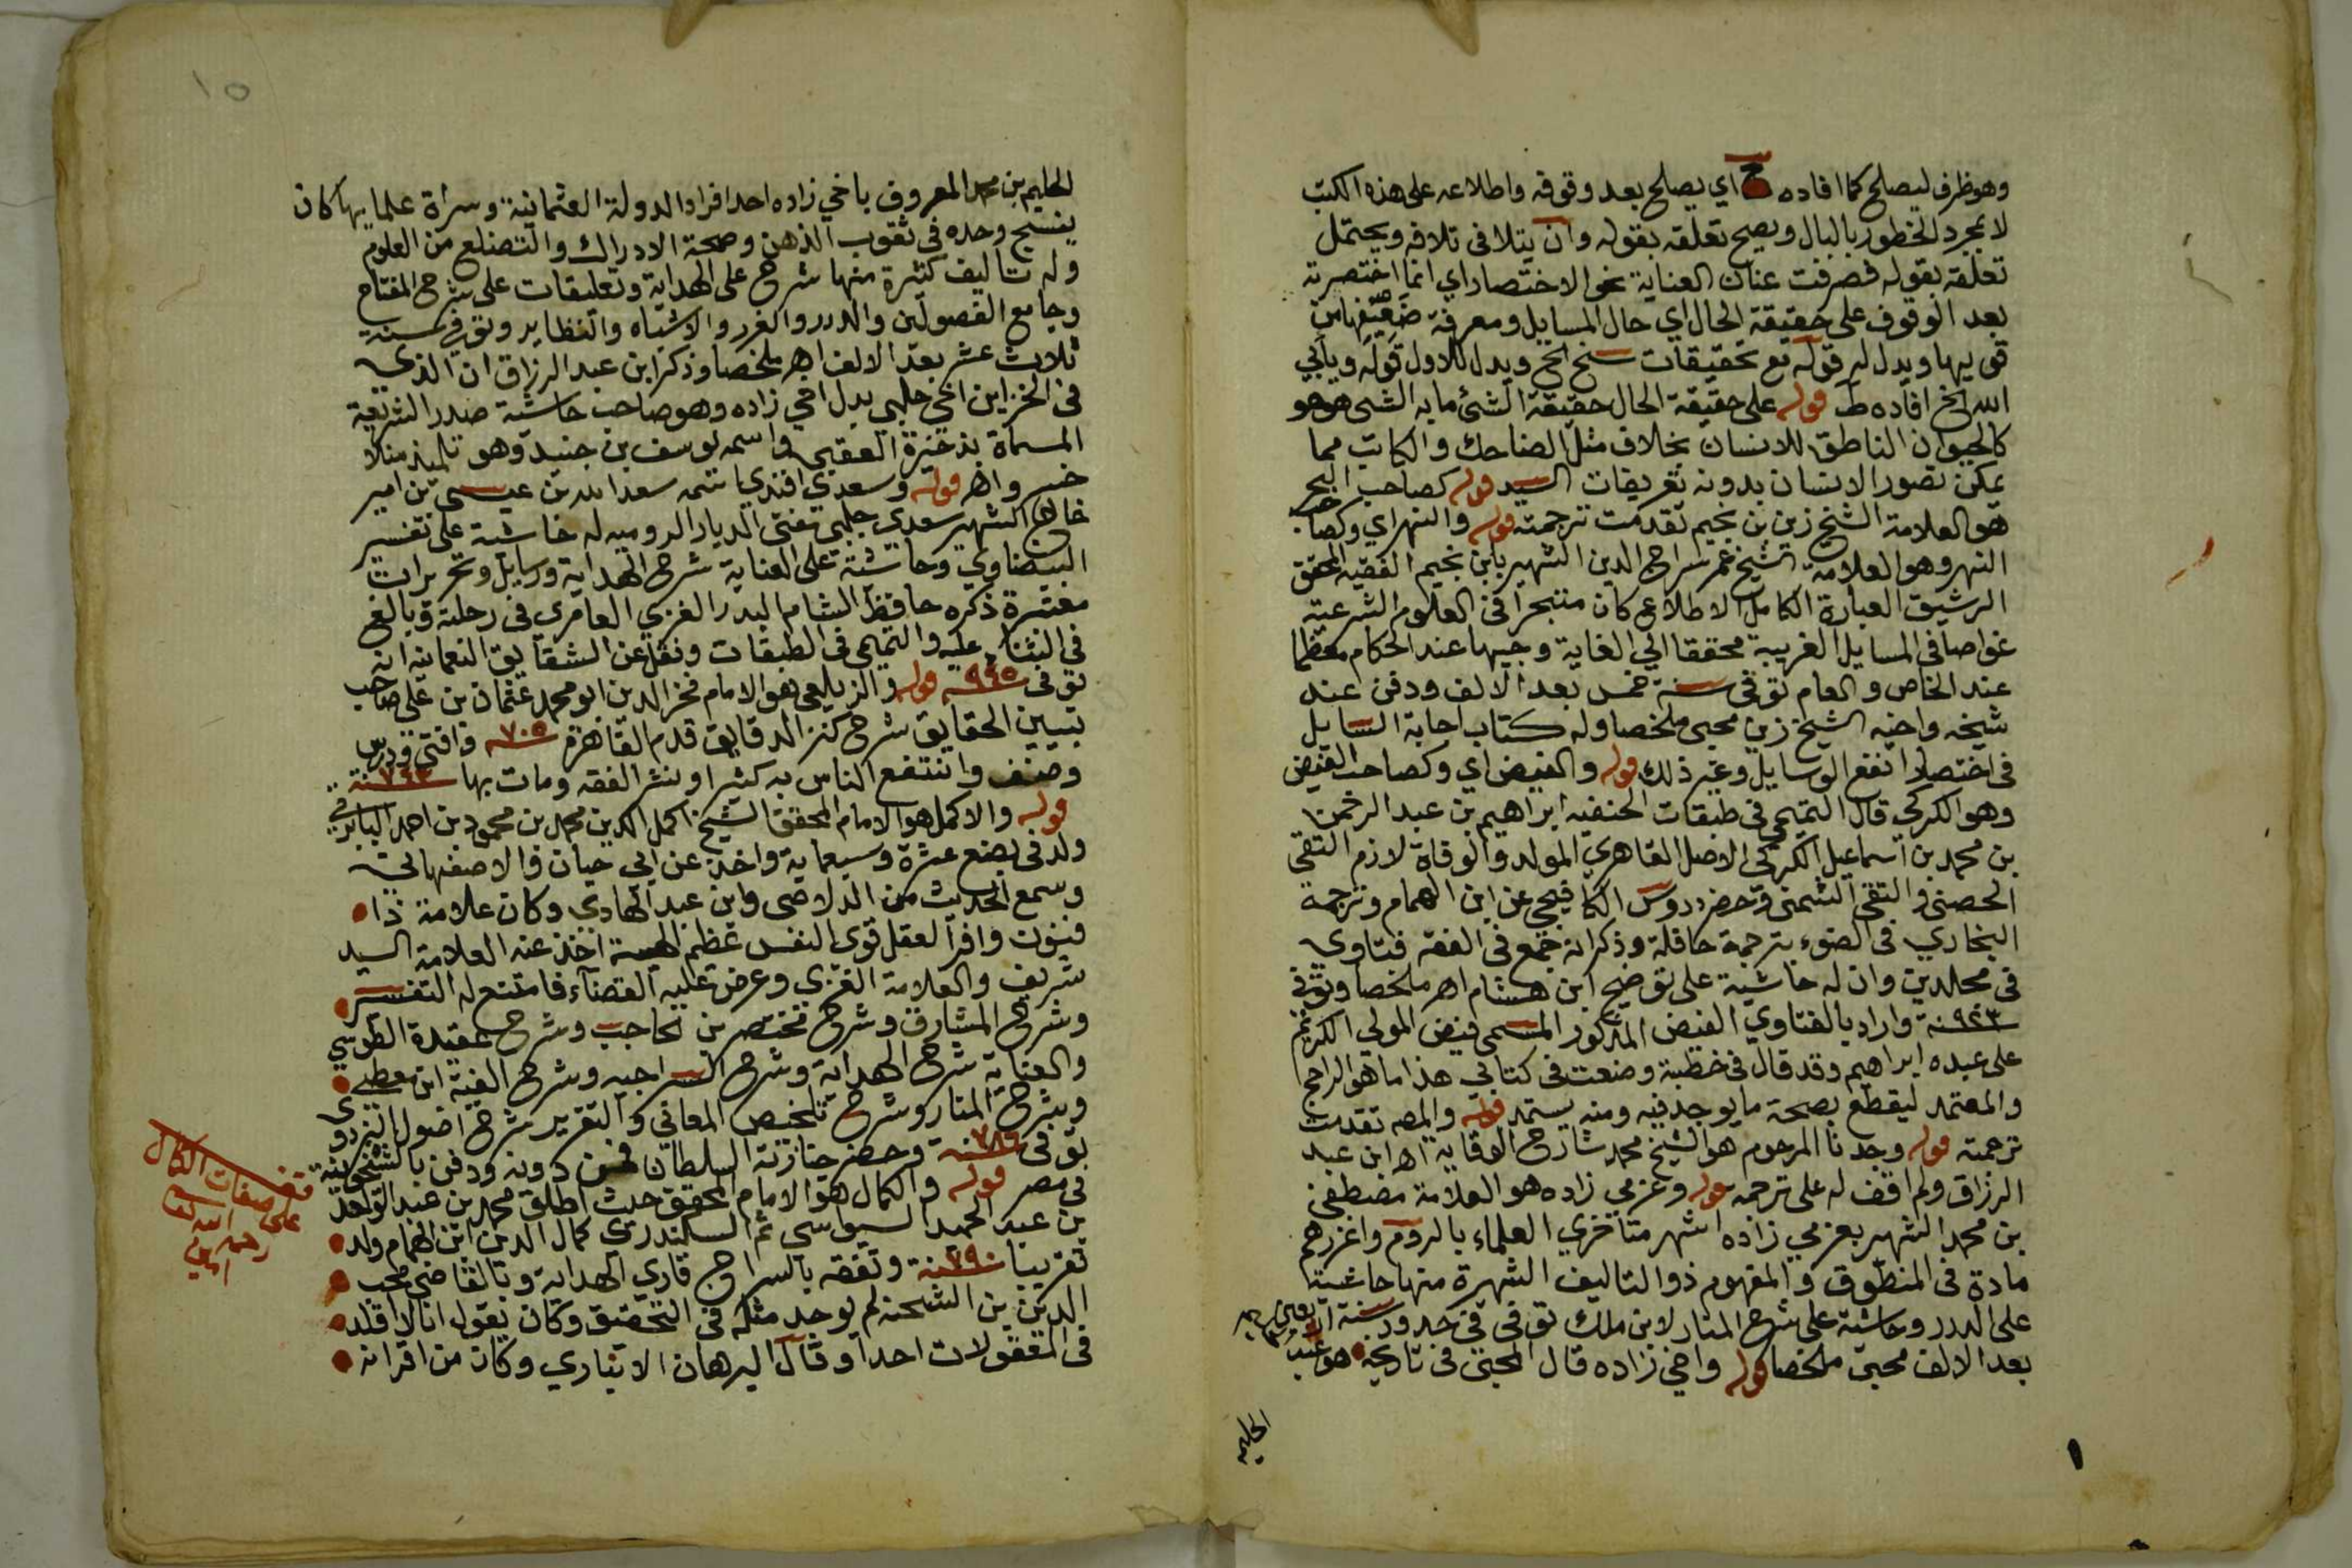 وهو ظرف ليصلح كما افاده ح اي يصلح بعد وقوفه واطلاعه على هذه الكتب
لا بمجرد الخطور بالبال ويصح تعلقه بقوله وان يتلافى تلافه ويحتمل
تعلقه بقوله فصرفت عنان العناية نحو الاختصار اي انما اختصرته
بعد الوقوف على حقيقة الحال اي حال المسايل ومعرفة ضعيفها من
قويها ويدل له قوله مع تحقيقات سنح الخ ويدل للاول قوله ويابي
الله الخ افاده ط قوله على حقيقة الحال حقيقة الشئ ما به الشى هو هو
كالحيوان الناطق للانسان بخلاف مثل الضاحك والكاتب مما
يمكن تصور الانسان بدونه تعريفات السيد قوله كصاحب البحر
هو العلامة الشيخ زين بن نجيم تقدمت ترجمته قوله والنهر اي وكصاحب
النهر وهو العلامة الشيخ عمر سراج الدين الشهير بابن نجيم الفقيه المحقق
الرشيق العبارة الكامل الاطلاع كان متبحرا في العلوم الشرعية
غواصا في المسايل الغريبة محققا الى الغاية وجيها عند الحكام معظما
عند الخاص والعام توفى سنة خمس بعد الالف ودفن عند
شيخه واخيه الشيخ زين محبى ملخصا وله كتاب اجابة السايل
فى اختصار انفع الوسايل وغير ذلك قوله والفيض اي وكصاحب الفيض
وهو الكركي قال التميمي في طبقات الحنفيه ابراهيم بن عبد الرحمن
بن محمد بن اسماعيل الكركي الاصل القاهري المولد والوفاة لازم التقى
الحصني والتقى الشمني وحضر دروس الكافيجي عن ابن الهمام وترجمه
البخاري في الضوء بترجمة حافلة وذكر انه جمع في الفقه فتاوى
فى مجلدين وان له حاشية على توضيح ابن هشام اهـ ملخصا وتوفى
سنة ٩٢٣ واراد بالفتاوي الفيض المذكور المسمى فيض المولى الكريم
على عبده ابراهيم وقد قال في خطبته وضعت في كتابي هذا ما هو الراجح
والمعتمد ليقطع بصحة ما يوجد فيه ومنه يستمد قوله والمص تقدمت
ترجمته قوله وجدنا المرحوم هو الشيخ محمد شارح الوقاية اهـ ابن عبد
الرزاق ولم اقف له على ترجمه قوله وعزمي زاده هو العلامة مصطفى
بن محمد الشهير بعزمي زاده اشهر متأخري العلماء بالروم واغزرهم
مادة في المنطوق والمفهوم ذو التاليف الشهيرة منها حاشية
على الدرر وحاشية على شرح المنار لابن ملك توفى فى حدود سنة اربعين
بعد الالف محبى ملخصا قوله واخي زاده قال المحبى في تاريخه هو عبد
الحليم
١٥
الحليم بن محمد المعروف باخي زاده احد افراد الدولة العثمانية وسراة علمايها كان
نسيج وحده في ثقوب الذهن وصحة الادراك والتضلع من العلوم
وله تاليف كثيرة منها شرح على الهداية وتعليقات على شرح المفتاح
وجامع الفصولين والدرر والغرر والاشباه والنظاير وتوفي سنة
ثلاث عشر بعد الالف اهـ ملخصا وذكر ابن عبد الرزاق ان الذي
فى الخزاين اخي جلبي بدل اخي زاده وهو صاحب حاشية صدر الشريعة
المسماة بذخيرة العقبي واسمه يوسف بن جنيد وهو تلميذ منلا
خسرو اهـ قوله وسعدي افندي اسمه سعد الله بن عيسى بن امير
خان الشهير بسعدي جلبي مفتى الديار الروميه له حاشية على تفسير
البيضاوي وحاشية على العناية شرح الهداية ورسايل وتحريرات
معتبرة ذكره حافظ الشام البدر الغزي العامري في رحلته وبالغ
فى الثناء عليه والتميمى في الطبقات ونقل عن الشقايق النعمانيه انه
توفى سنة ٩٤٥ قوله والزيلعى هو الامام فخر الدين ابو محمد عثمان بن على صاحب
تبيين الحقايق شرح كنز الدقايق قدم القاهرة سنة ٧٠٥ وافتى ودرس
وصنف وانتفع الناس به كثيرا ونشر الفقه ومات بها سنة ٧٤٣
قوله والاكمل هو الامام المحقق الشيخ اكمل الدين محمد بن محمود بن احمد البابرتي
ولد في بضع عشرة وسبعماية واخذ عن ابي حيان والاصفهاني
وسمع الحديث من الدلاصى وابن عبد الهادي وكان علامة ذا
فنون وافر العقل قوى النفس عظيم الهيبة اخذ عنه العلامة السيد
شريف والعلامة الفنري وعرض عليه القضاء فامتنع له التفسير
وشرح المشارق وشرح مختصر بن الحاجب وشرح عقيدة الطوسي
والعناية شرح الهداية وشرح السراجيه وشرح الفية ابن معطي
وشرح المنار وشرح تلخيص المعاني والتقرير شرح اصول البزدوي
توفى سنة ٧٨٦ وحضر جنازته السلطان فمن دونه ودفن بالشيخونية
في مصر قوله والكمال هو الامام المحقق حيث اطلق محمد بن عبد الواحد
بن عبد الحميد السيواسي ثم السكندري كمال الدين ابن الهمام ولد
تقريبا سنة ٧٩٠ وتفقه بالسراج قاري الهداية وبالقاضى محب
الدين بن الشحنه لم يوجد مثله في التحقيق وكان يقول انا لا اقلد
فى المعقولات احدا وقال البرهان الابناسي وكان من اقرانه
على صفات الكمال
رحمه الله تعالى
امين